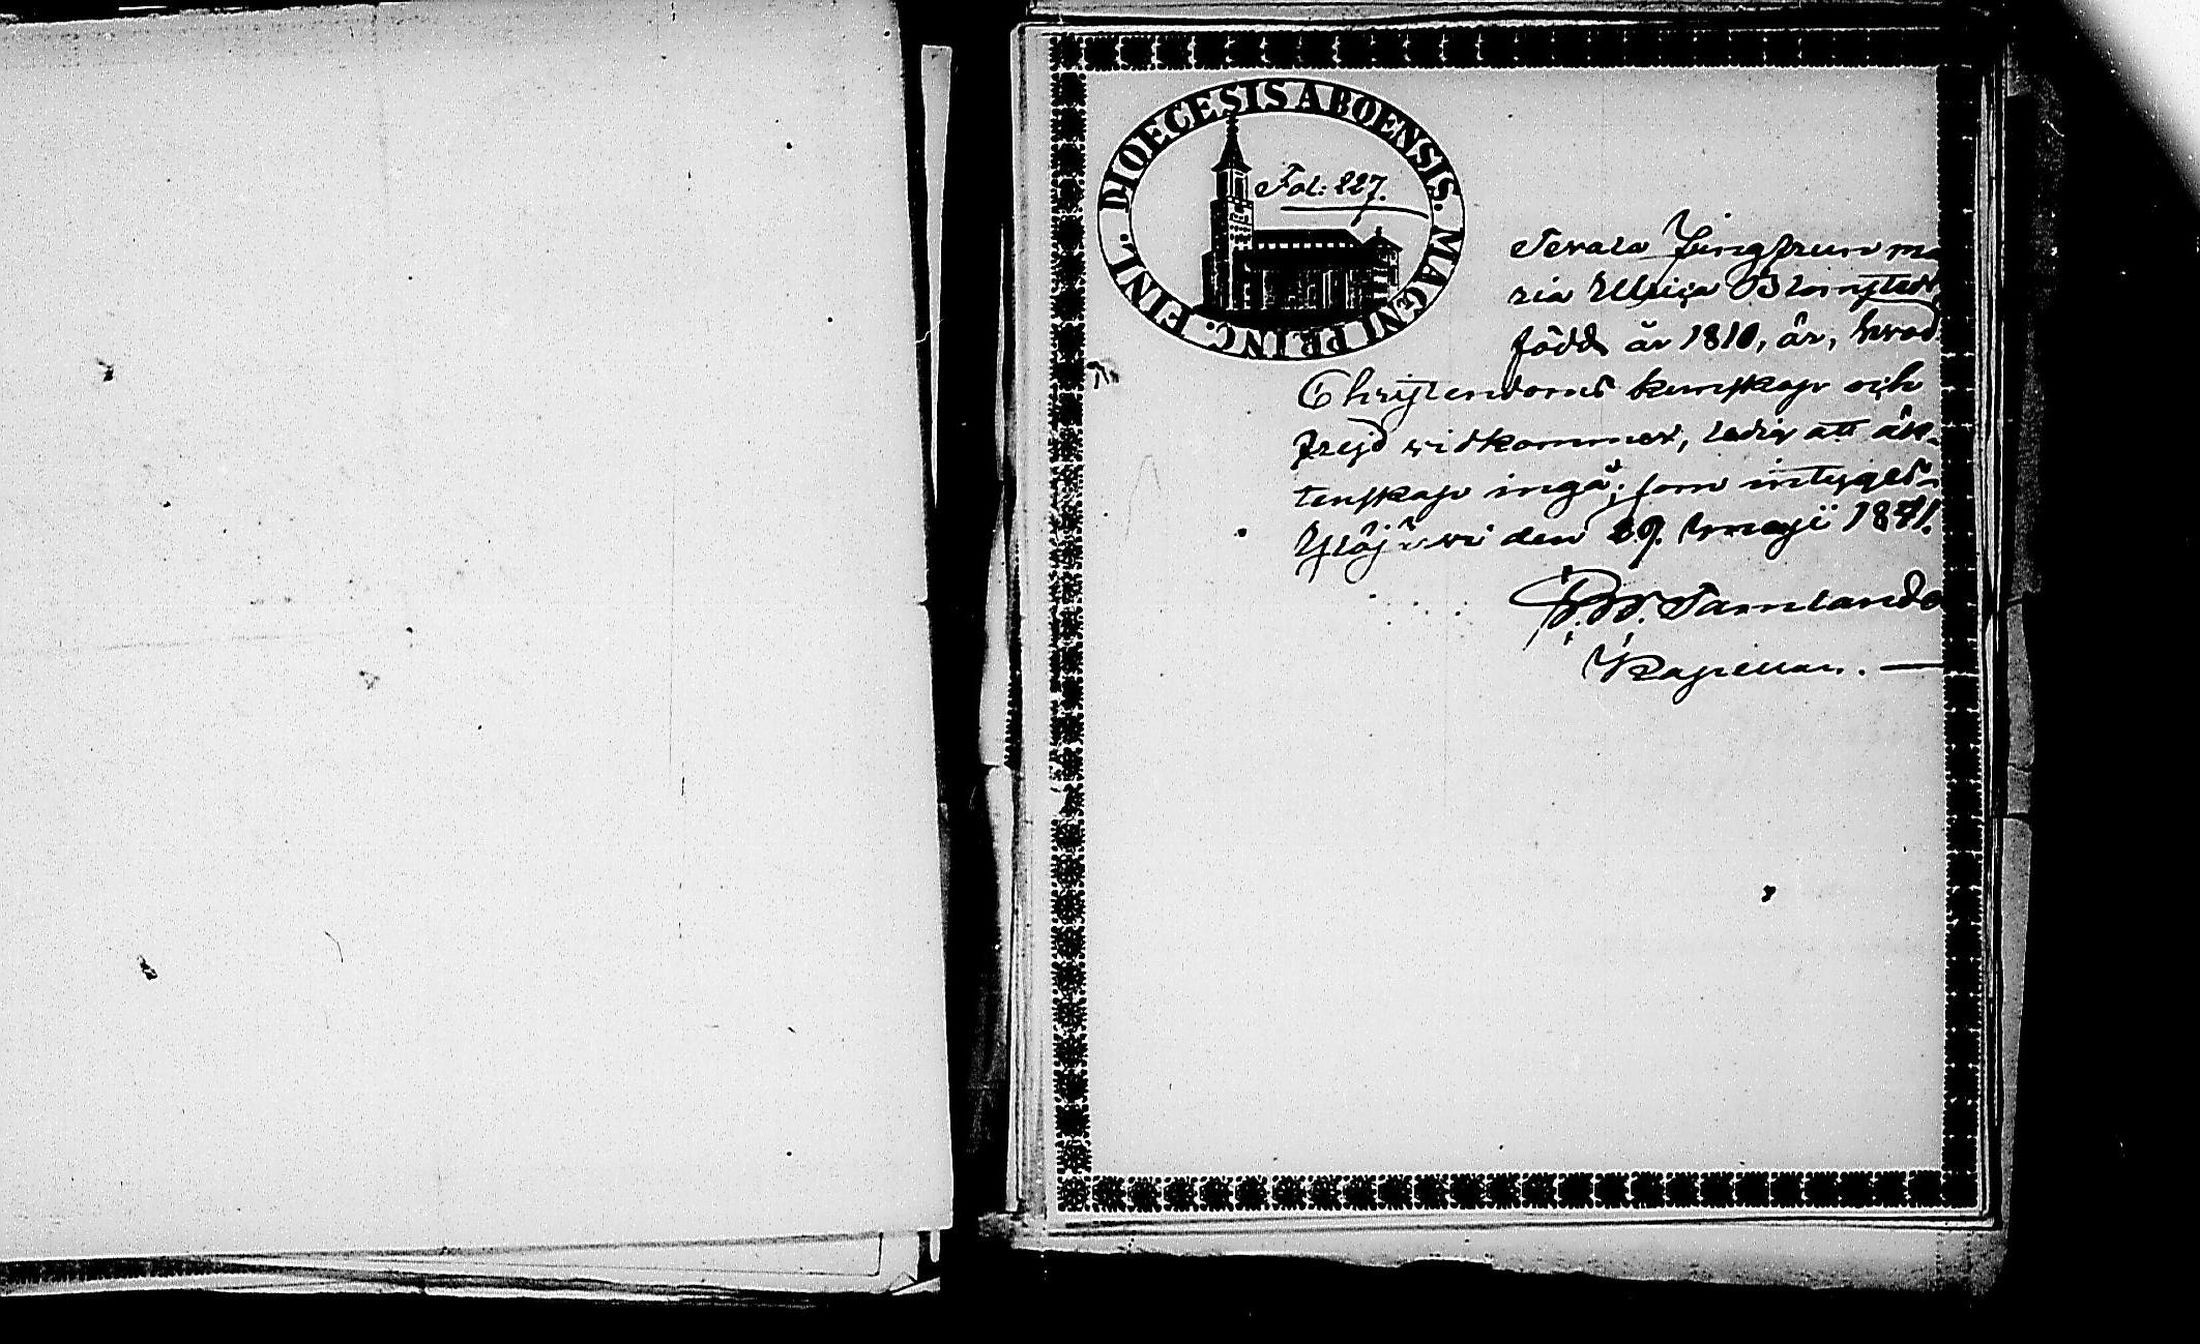 DIOECESIS ABOENSIS. MAGNI PRINC. FINL.
Fol: 227.
Jungfrun Ma
ria Ulrica Blomstedt
född år 1810, är, hvad
Christendoms kunskap och
frejd vidkommer, ledig att äk-
tenskap ingå; som intygas.
Ylöjärvi den 29. Maji 1841.
Tamlande
Kapellan. —